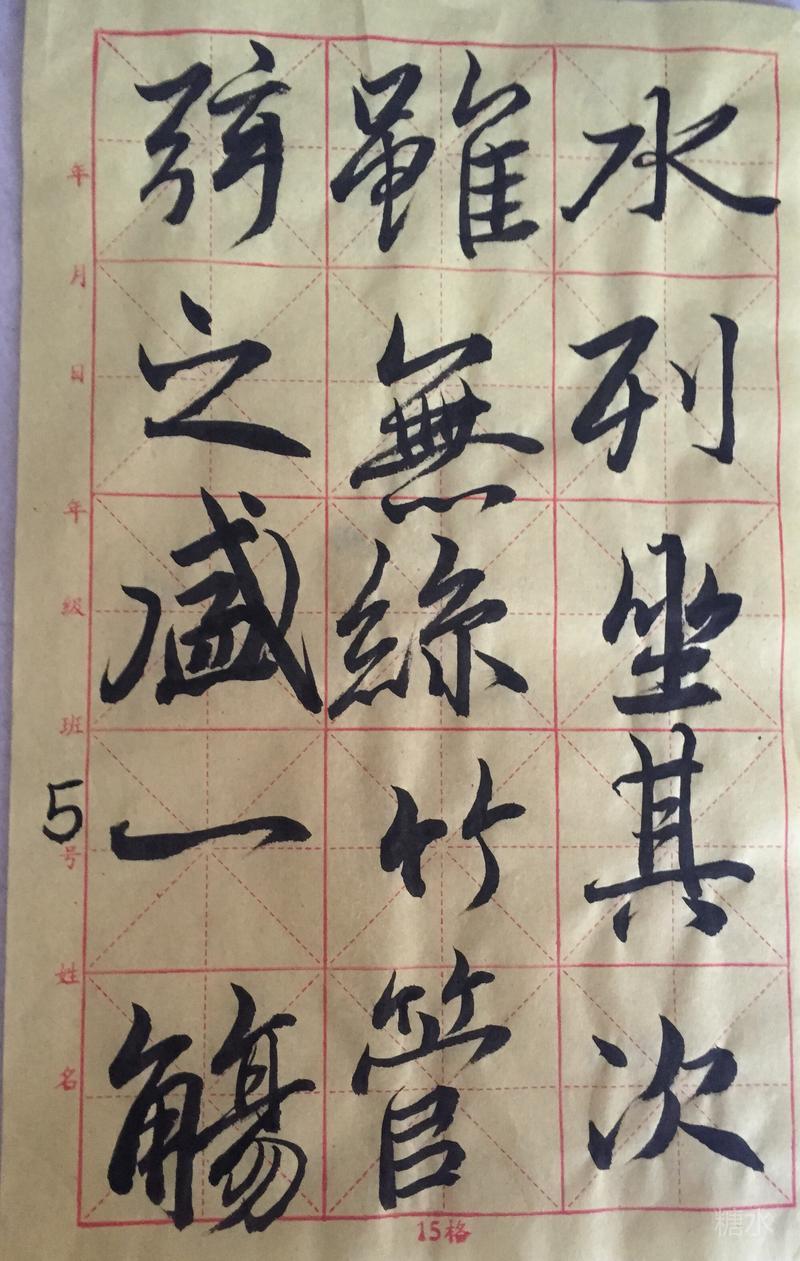 水列坐其次
雖無絲竹管
弦之盛一觴
年
月
日
年
級
班
5号
姓
名
15格
糖水